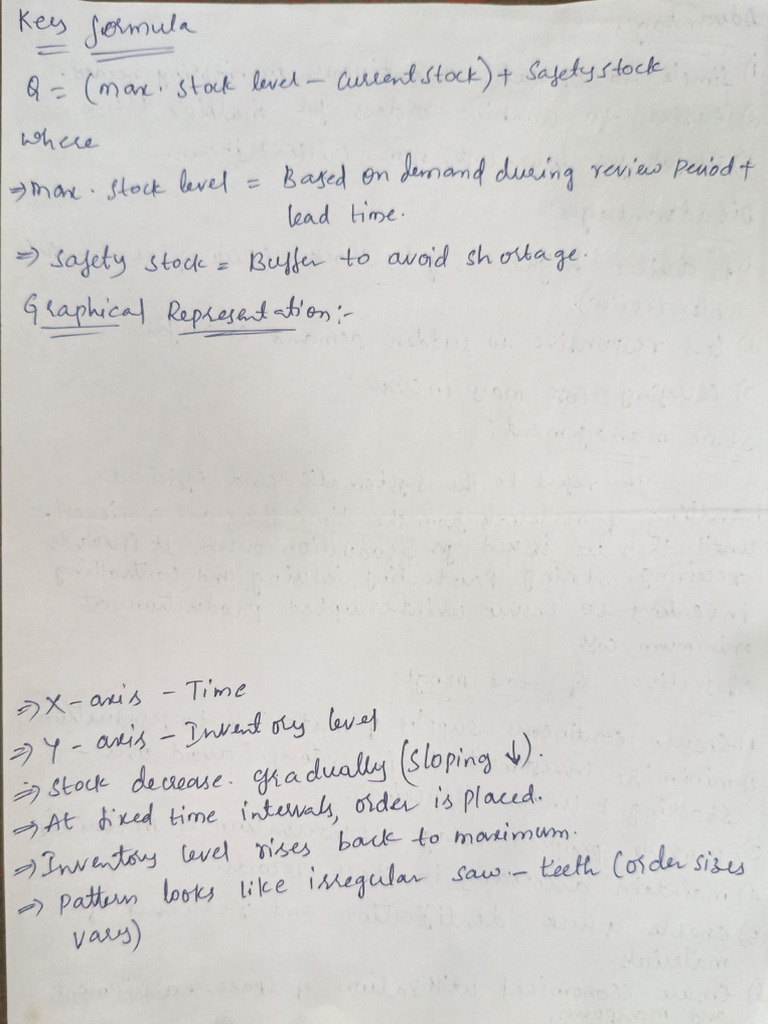 Key formula
Q = (max. stock level - current stock) + Safety stock
where
⇒ max. stock level = Based on demand during review period +
lead time.
⇒ Safety stock = Buffer to avoid shortage.
Graphical Representation:-
⇒ X-axis - Time
⇒ Y-axis - Inventory level
⇒ Stock decrease. gradually (sloping ↓).
⇒ At fixed time intervals, order is placed.
⇒ Inventory level rises back to maximum.
⇒ Pattern looks like irregular saw-teeth (order sizes
vary)